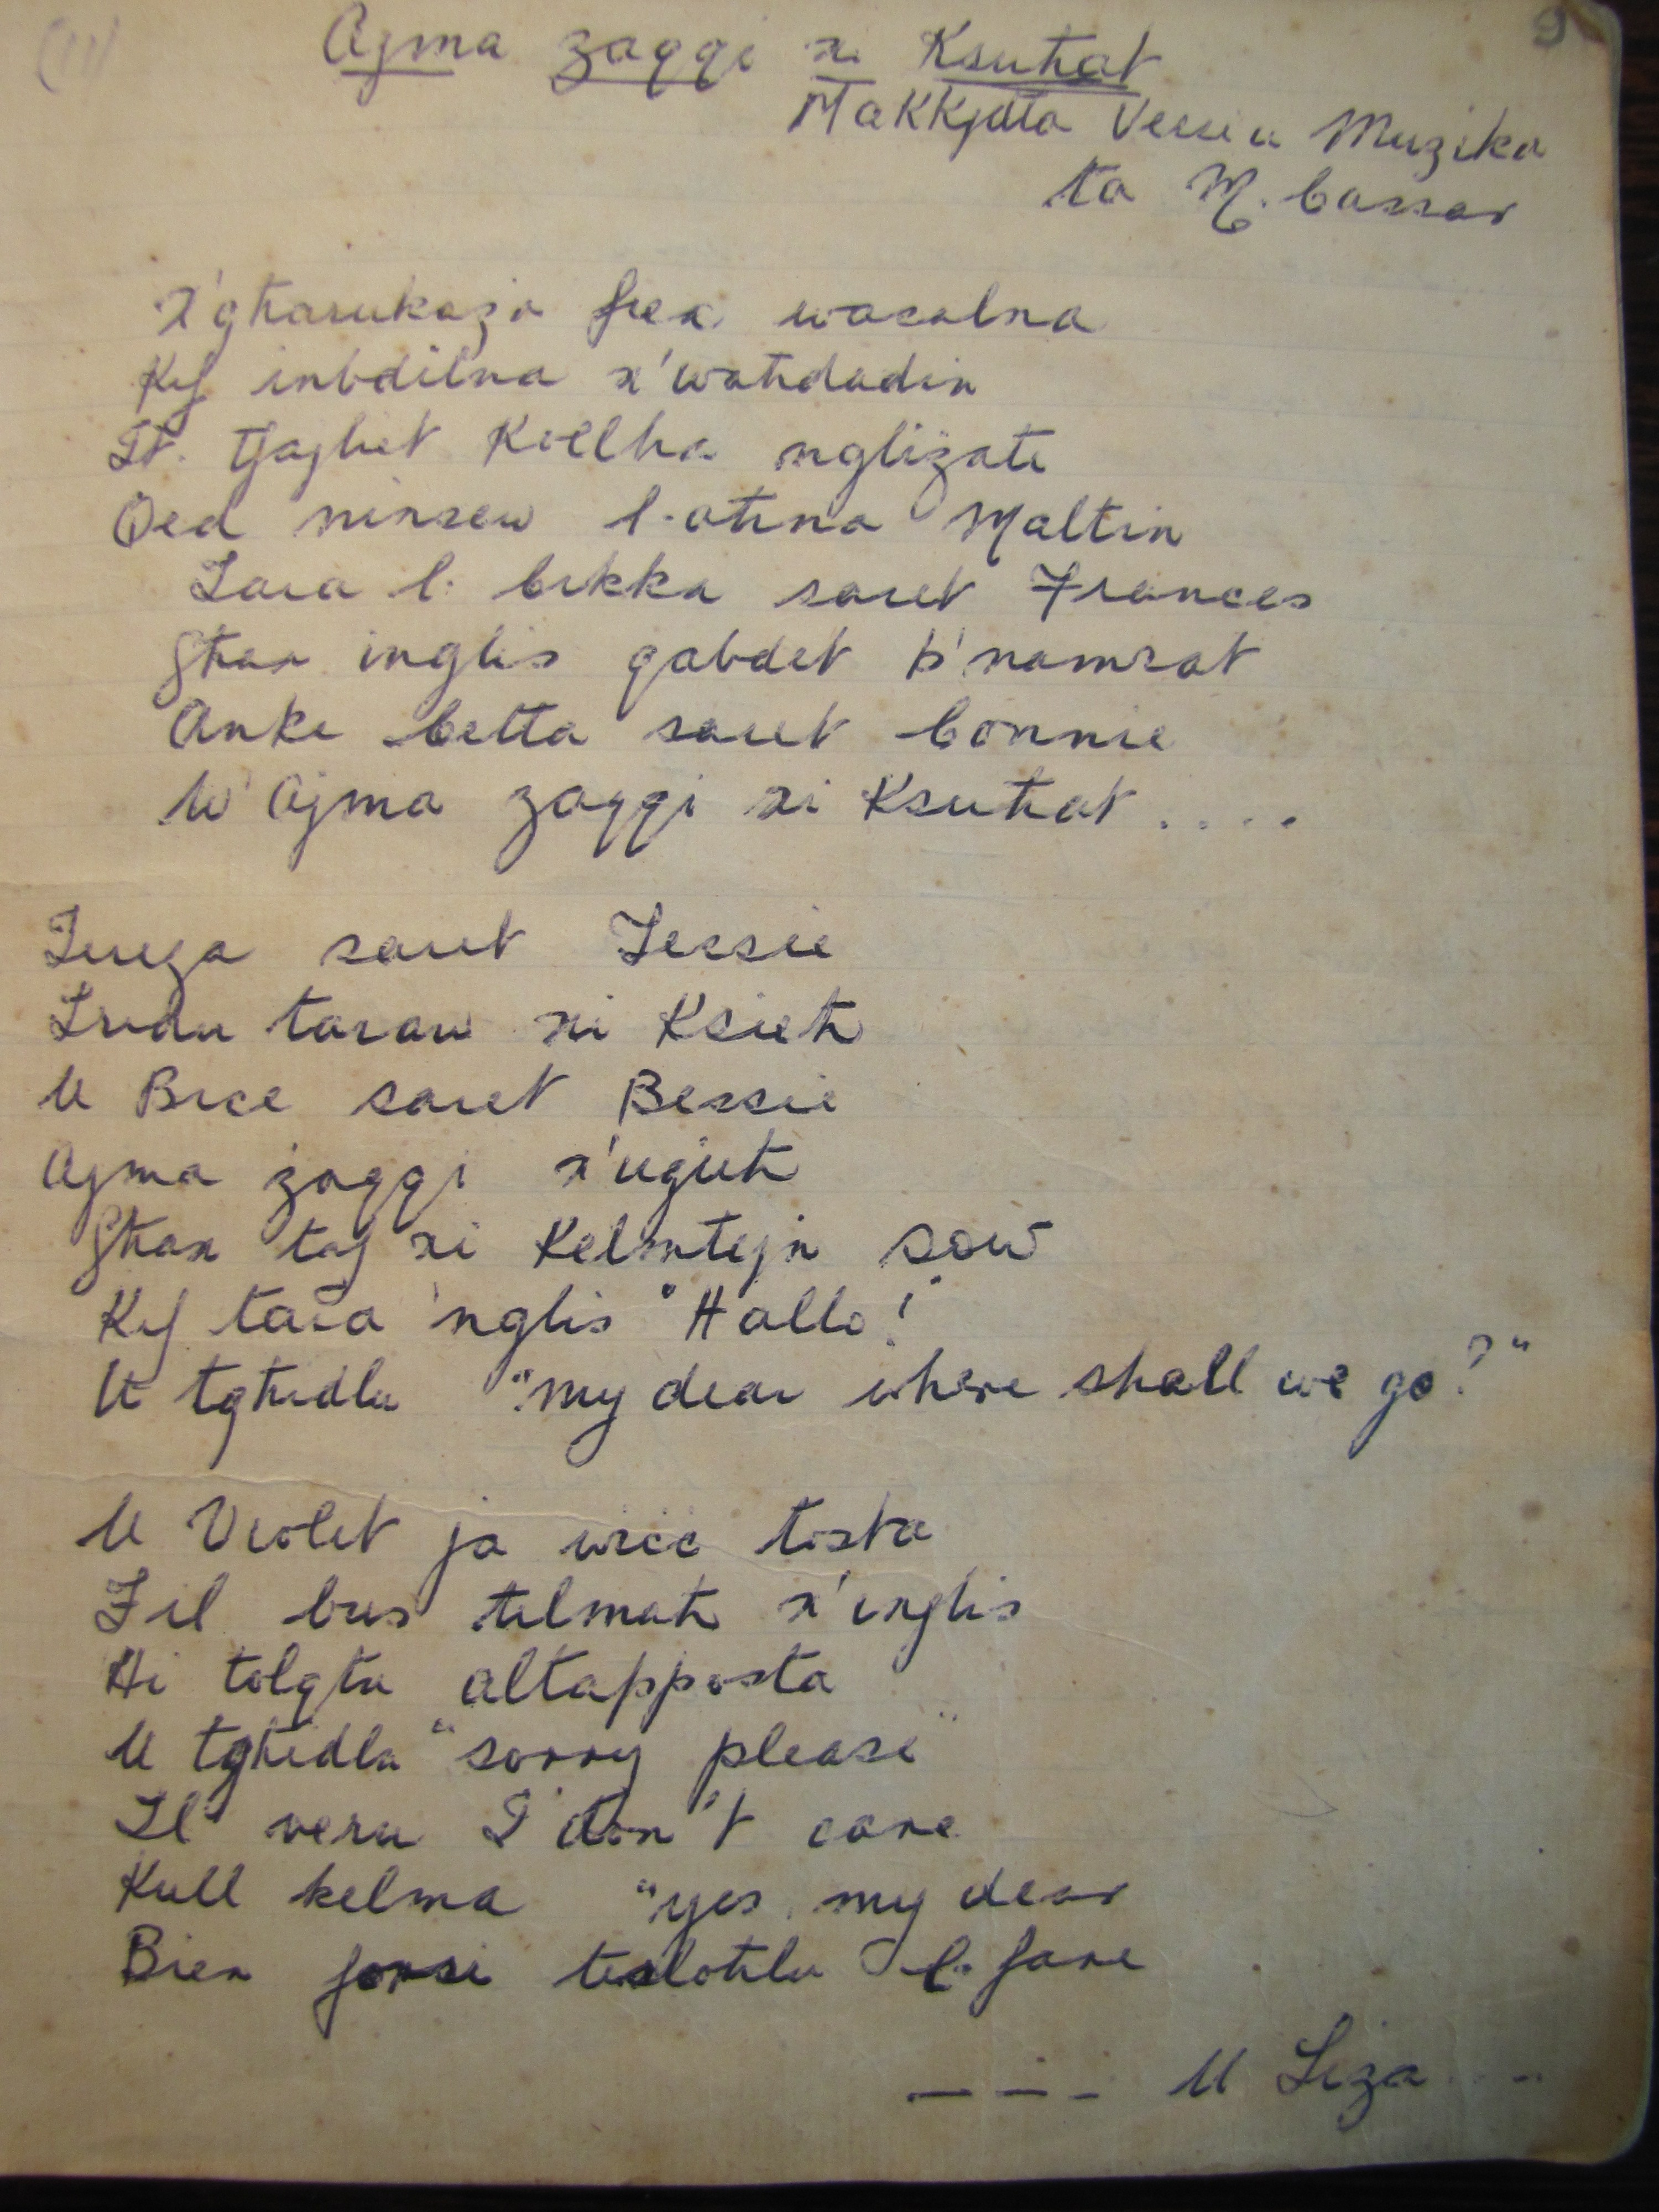 (11) 9
Ajma zaqqi xi Ksuħat
Makkjetta Versi u Muzika
ta M. Cassar
X'għarukaza fiex wasalna
Kif inbdilna x'waħdadin
It tfajliet Kollha nglizati
Qed ninsew l-aħna Maltin
Sara l. Cikka saret Frances
Għax inglis qabdet b'namrat
Anki Cetta saret Connie
U Ajma zaqqi xi Ksuħat ....
Tereza saret Tessie
Tridu taraw xi Ksieħ
U Bice saret Bessie
Ajma zaqqi x'ugieħ
Għax taf xi Kelmtejn sew
Kif tara nglis "Hallo!"
U tgħidlu "my dear where shall we go?"
U Violet ja wicc tosta
Fil bus tilmaħ x'inglis
Hi tolqtu altapposta
U tgħidlu "sorry please"
Il veru I don't care
Kull kelma "yes my dear
Biex forsi tisloħlu l. fare
--- U Liza --